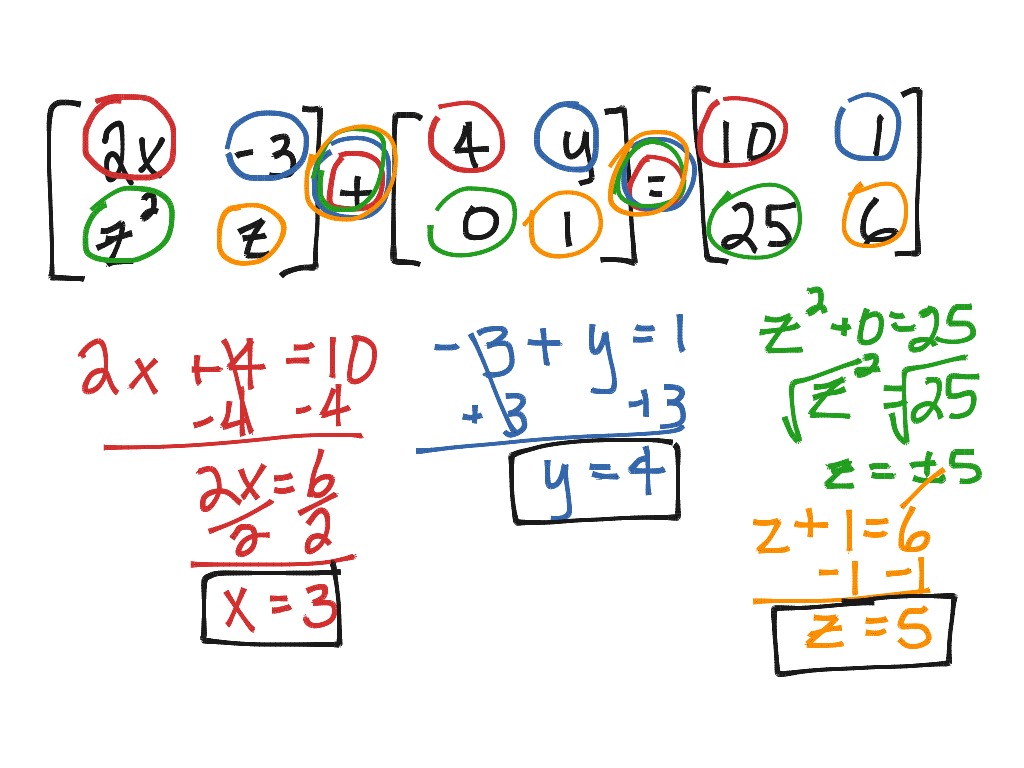 [2x -3] + [4 y] = [10 1]
[z² z] [0 1] [25 6]
2x + 4 = 10
-4 -4
2x = 6
2 2
x = 3
-3 + y = 1
+3 +3
y = 4
z² + 0 = 25
√z² = √25
z = ±5
z + 1 = 6
-1 -1
z = 5